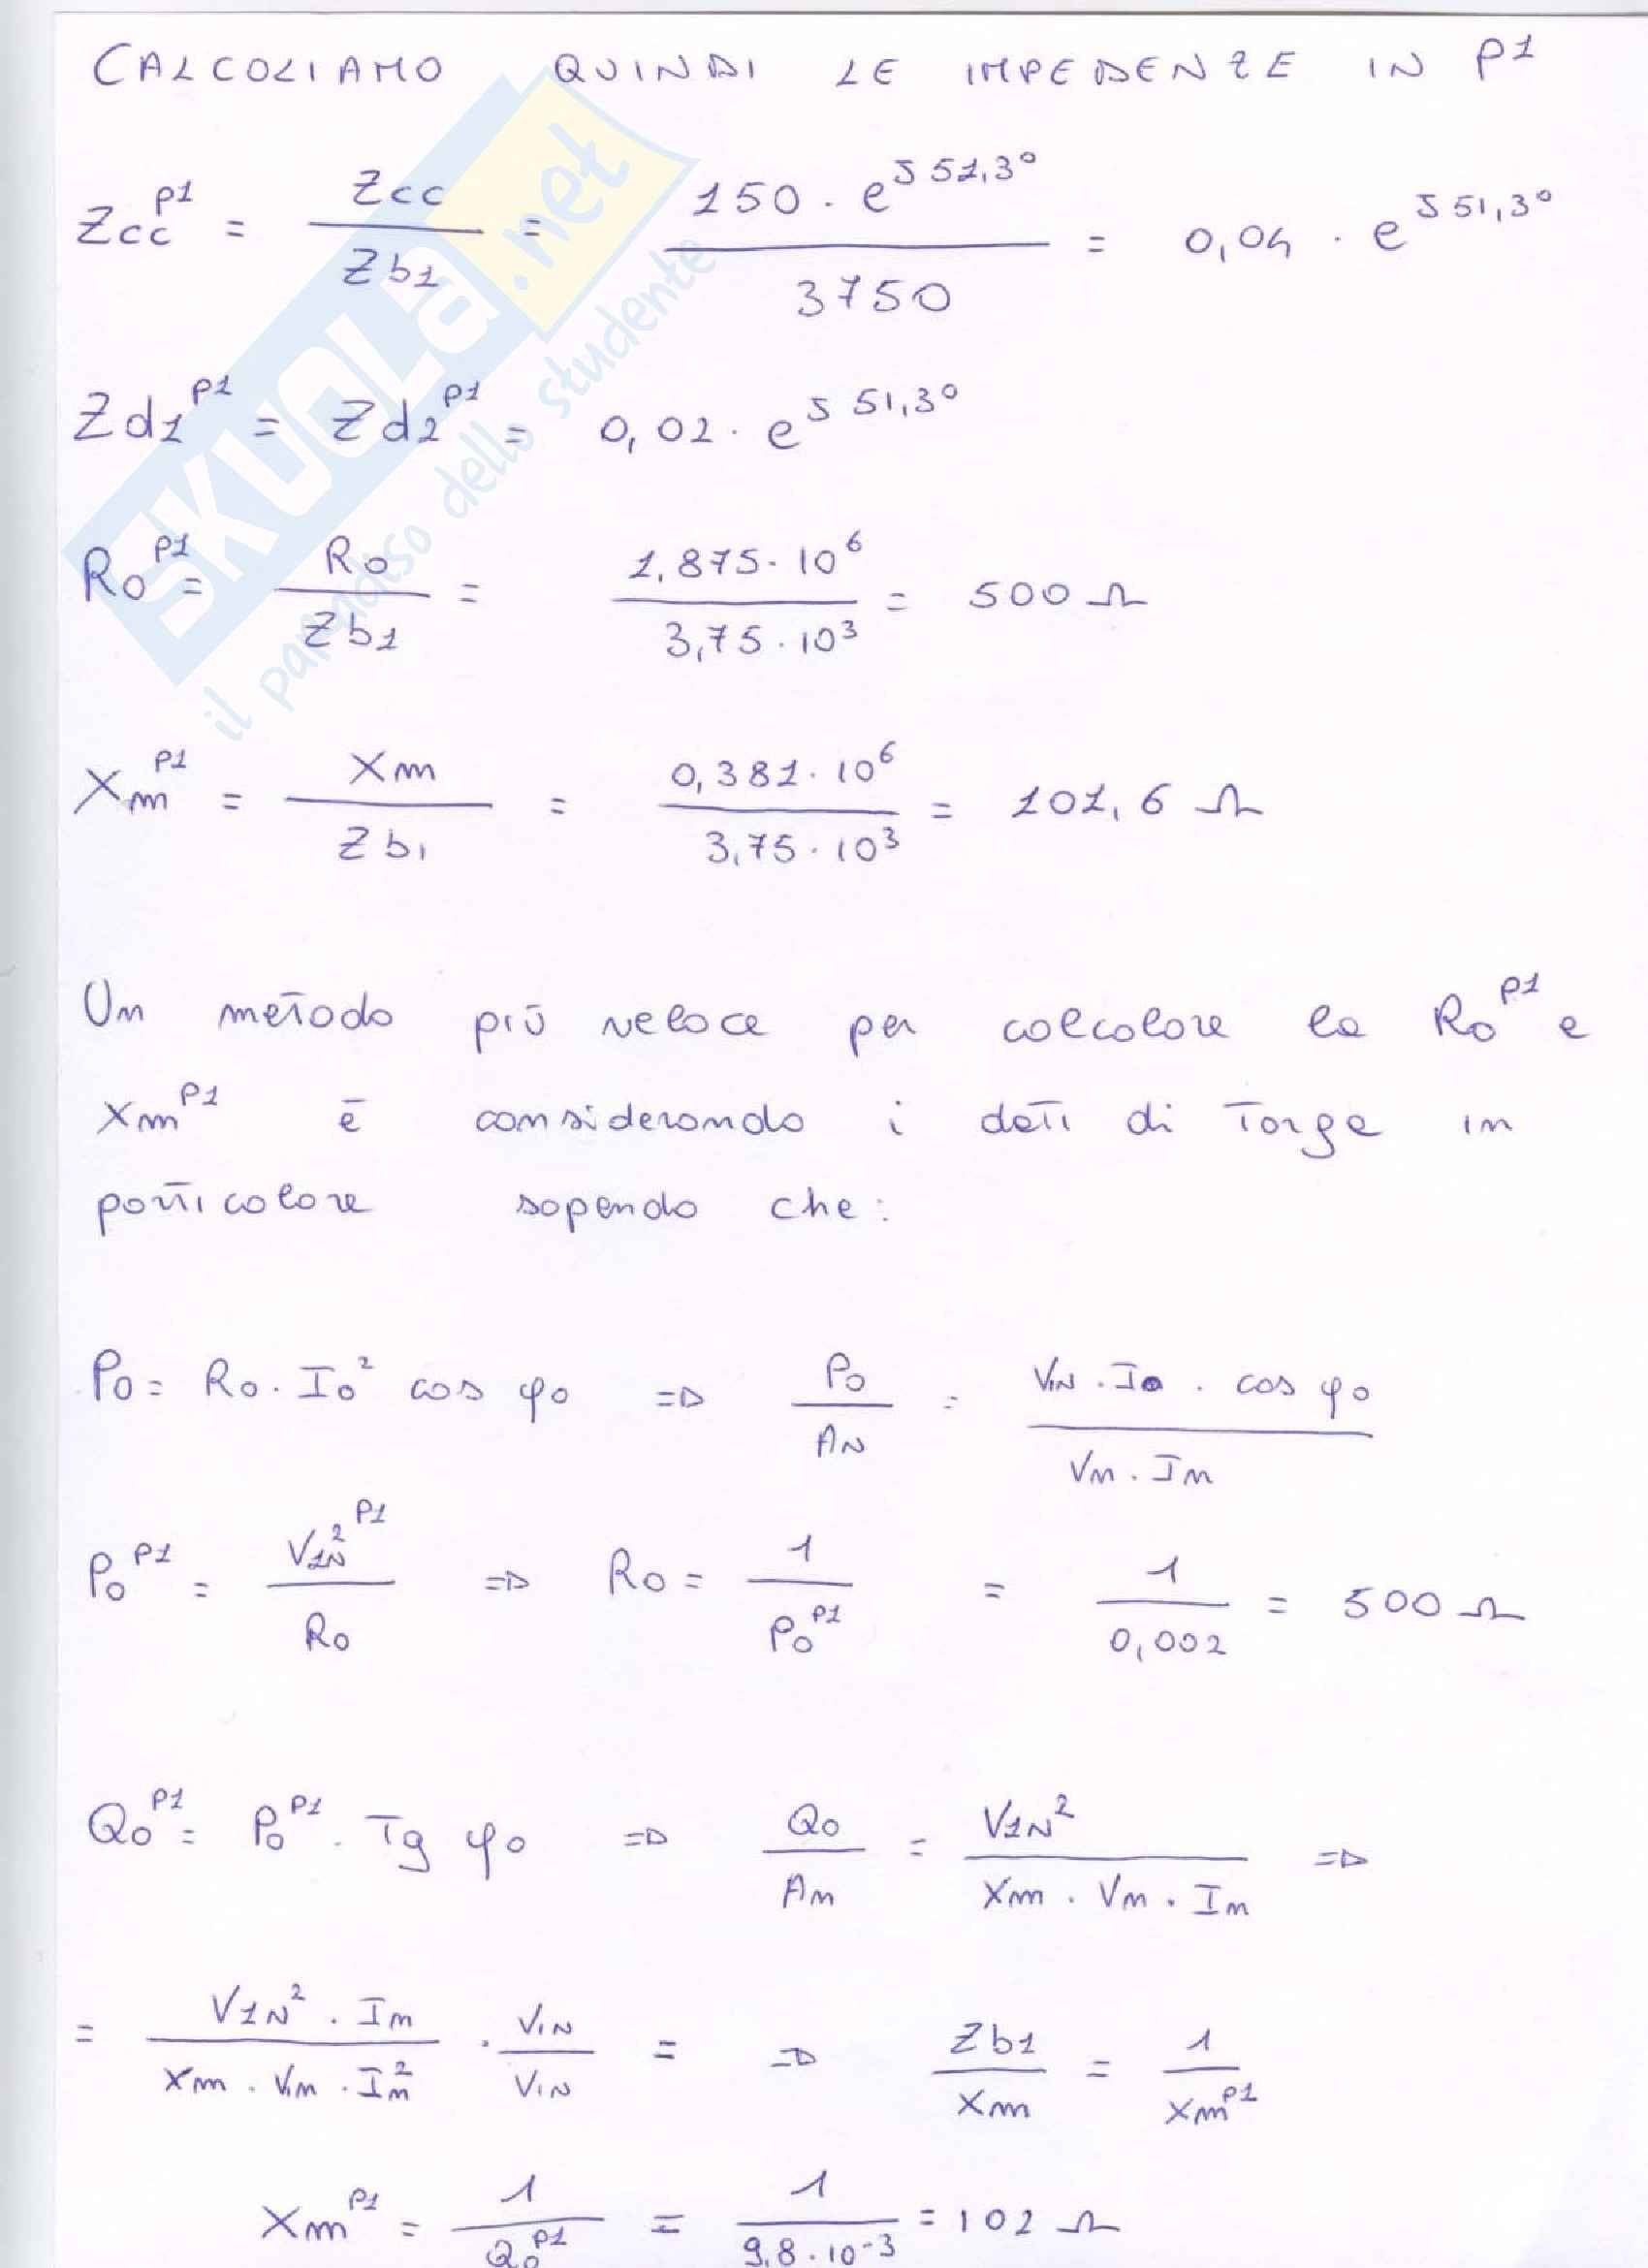 CALCOLIAMO QUINDI LE IMPEDENZE IN P1
Zcc^P1 = Zcc / Zb1 = 150 · e^J 51,3° / 3750 = 0,04 · e^J 51,3°
Zd1^P1 = Zd2^P1 = 0,02 · e^J 51,3°
Ro^P1 = Ro / Zb1 = 1,875 · 10^6 / 3,75 · 10^3 = 500 Ω
Xm^P1 = Xm / Zb1 = 0,381 · 10^6 / 3,75 · 10^3 = 101,6 Ω
Un metodo più veloce per calcolare la Ro^P1 e
Xm^P1 è considerando i dati di Targa in
particolare sapendo che:
Po = Ro · Io² cos φo => Po / AN = VIN · Io · cos φo / Vn · In
Po^P1 = V1N²^P1 / Ro => Ro = 1 / Po^P1 = 1 / 0,002 = 500 Ω
Qo^P1 = Po^P1 · Tg φo => Qo / An = V1N² / Xm · Vn · In =>
= V1N² · In / Xm · Vn · In² · VIN / VIN = => Zb1 / Xm = 1 / Xm^P1
Xm^P1 = 1 / Qo^P1 = 1 / 9,8 · 10^-3 = 102 Ω
SKUOLA.net
il paradiso dello studente